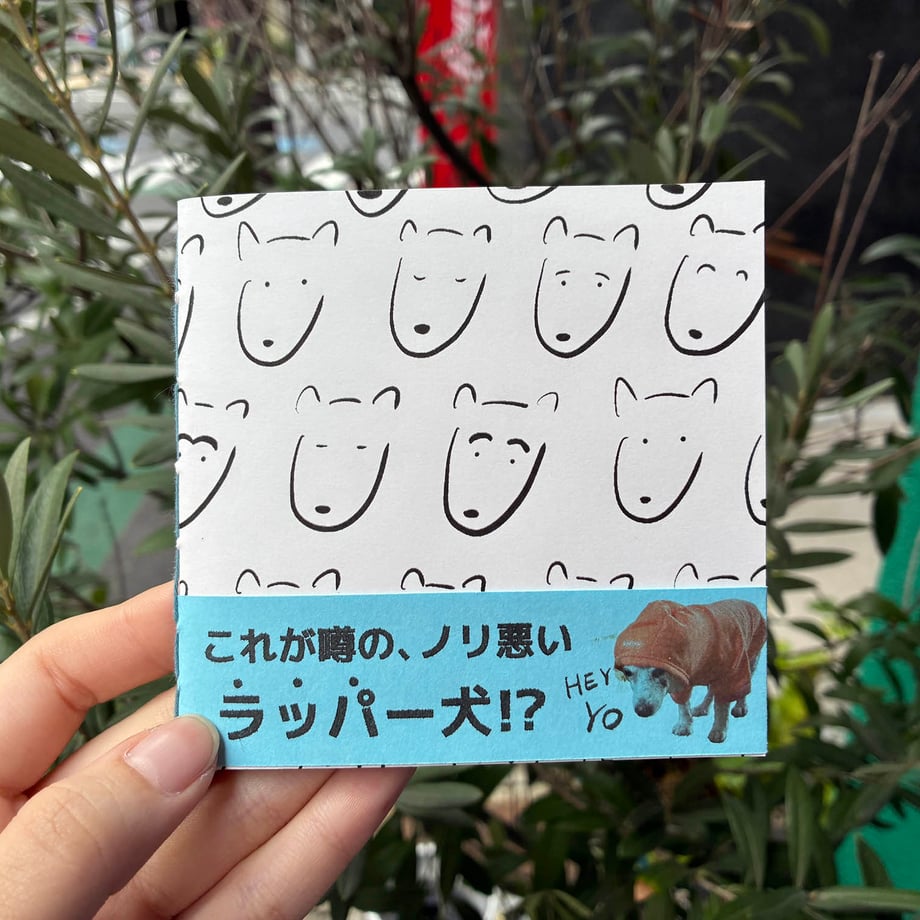 これが噂の、ノリ悪い
ラッパー犬!?
HEY
YO